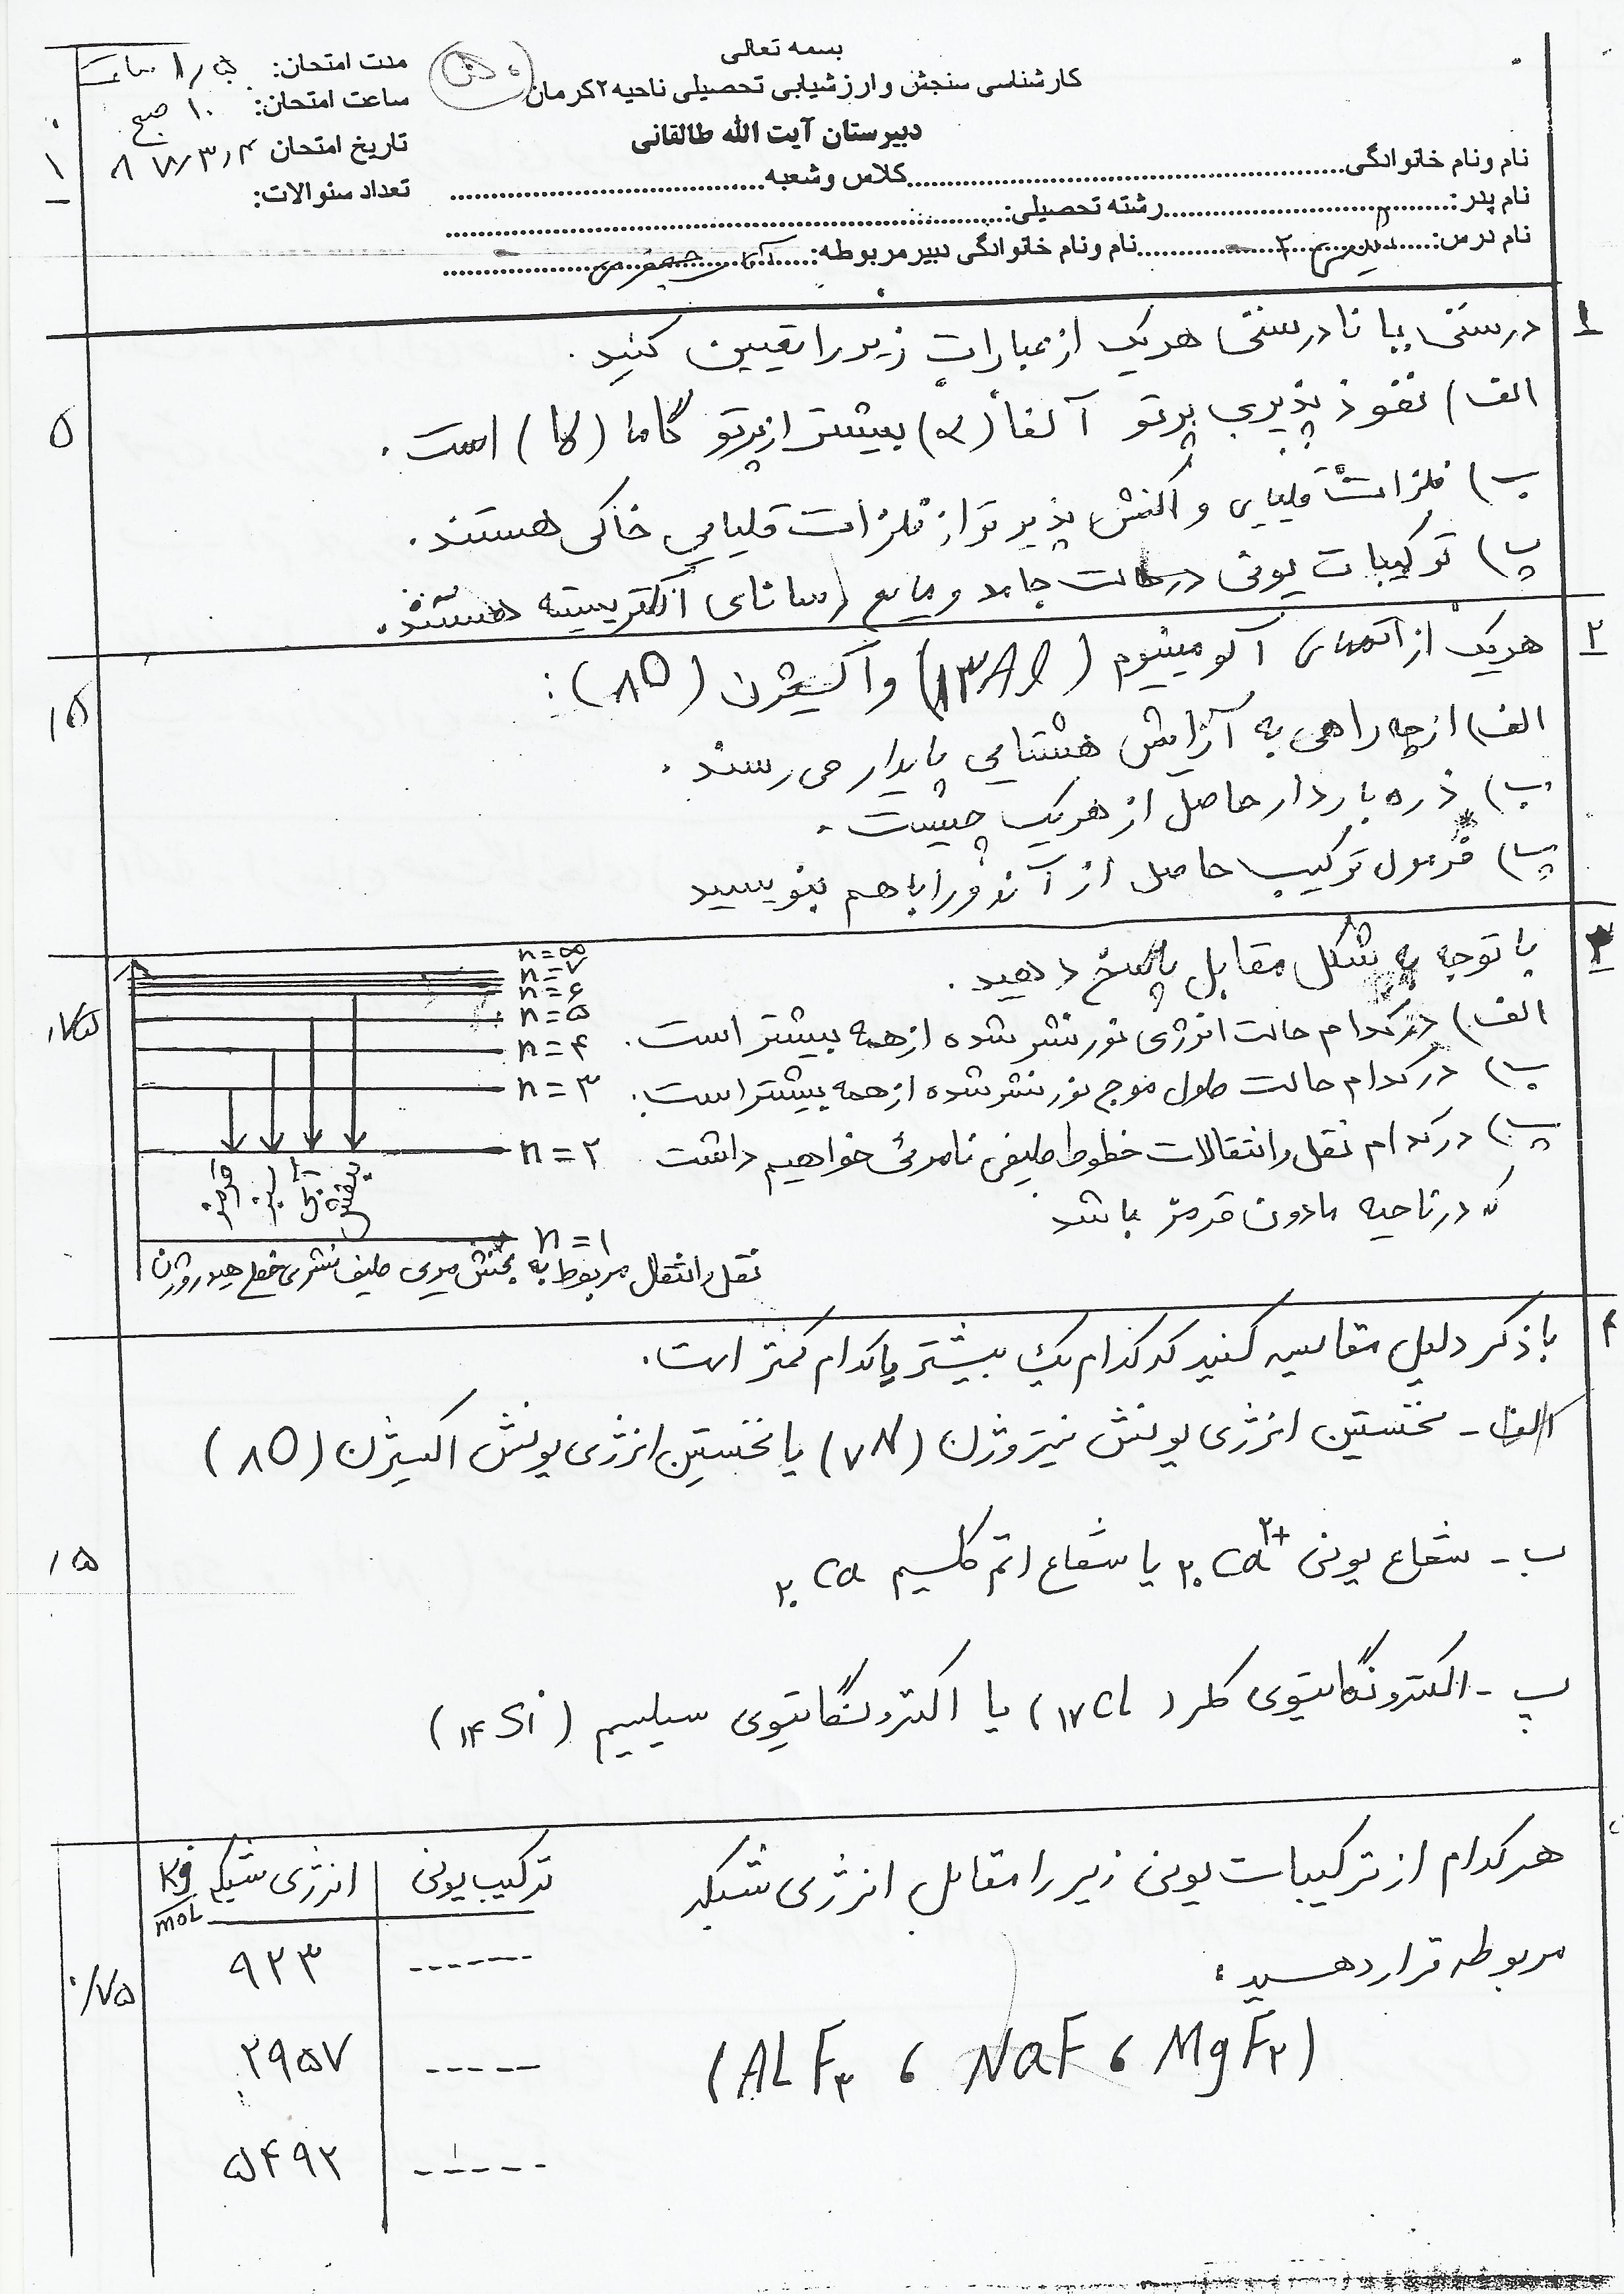 بسمه تعالی
کارشناسی سنجش و ارزشیابی تحصیلی ناحیه ۲ کرمان
دبیرستان آیت الله طالقانی
مدت امتحان: ۱/۵ ساعت
ساعت امتحان: ۱۰ صبح
تاریخ امتحان ۸۷/۳/۴
تعداد سئوالات:
نام ونام خانوادگی......کلاس وشعبه......
نام پدر:......رشته تحصیلی:......
نام درس: شیمی ۲ نام ونام خانوادگی دبیر مربوطه: آقای جعفری
۱ درستی یا نادرستی هریک از عبارات زیر را تعیین کنید.
الف) نفوذ پذیری پرتو آلفا (α) بیشتر از پرتو گاما (γ) است.
ب) فلزات قلیایی واکنش پذیر تر از فلزات قلیایی خاکی هستند.
پ) ترکیبات یونی در حالت جامد و مایع رسانای الکتریسیته هستند.
۲ هریک از اتمهای آلومینیوم (۱۳Al) و اکسیژن (۸O):
الف) از چه راهی به آرایش هشتایی پایدار می رسند.
ب) ذره باردار حاصل از هریک چیست.
پ) فرمول ترکیب حاصل از آندو را باهم بنویسید
۳ با توجه به شکل مقابل پاسخ دهید.
الف) در کدام حالت انرژی نور نشر شده از همه بیشتر است.
ب) در کدام حالت طول موج نور نشر شده از همه بیشتر است.
پ) در کدام نقل و انتقالات خطوط طیفی نامرئی خواهیم داشت
که در ناحیه مادون قرمز باشد
n=∞
n=۷
n=۶
n=۵
n=۴
n=۳
n=۲
قرمز سبز آبی بنفش
n=۱
نقل و انتقال مربوط به بخش مرئی طیف نشری خطی هیدروژن
۴ با ذکر دلیل مقایسه کنید که کدام یک بیشتر یا کدام کمتر است.
الف - نخستین انرژی یونش نیتروژن (۷N) یا نخستین انرژی یونش اکسیژن (۸O)
ب - شعاع یونی ۲۰Ca۲+ یا شعاع اتم کلسیم ۲۰Ca
پ - الکترونگاتیوی کلر (۱۷Cl) یا الکترونگاتیوی سیلیسیم (۱۴Si)
هر کدام از ترکیبات یونی زیر را مقابل انرژی شبکه
مربوطه قرار دهید:
(ALF۳ ، NaF ، MgF۲)
ترکیب یونی | انرژی شبکه KJ/moL
------ ۹۲۳
----- ۲۹۵۷
------ ۵۴۹۲
۰/۷۵